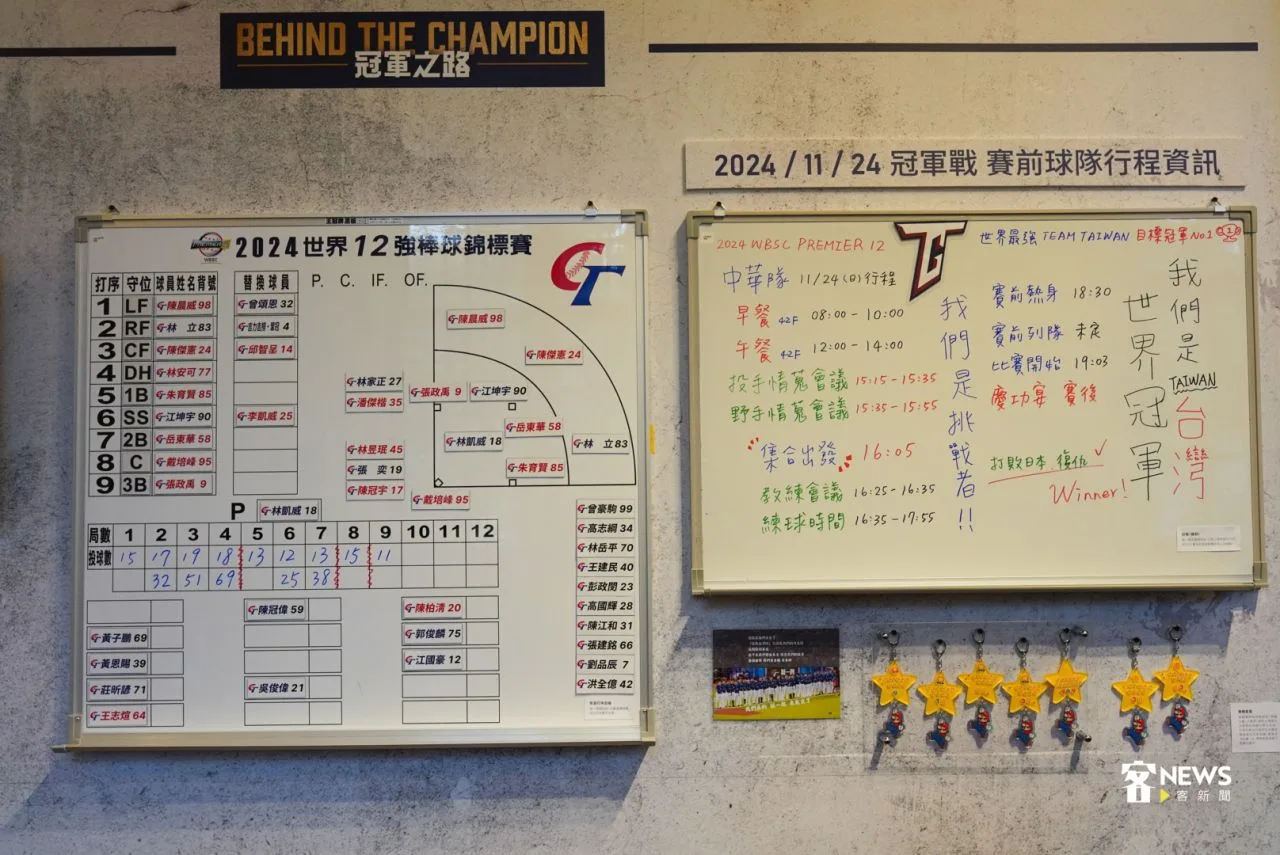 BEHIND THE CHAMPION
冠軍之路
2024 / 11 / 24 冠軍戰 賽前球隊行程資訊
2024世界12強棒球錦標賽
打序 守位 球員姓名背號
1 LF 陳晨威 98
2 RF 林 立 83
3 CF 陳傑憲 24
4 DH 林安可 77
5 1B 朱育賢 85
6 SS 江坤宇 90
7 2B 岳東華 58
8 C 戴培峰 95
9 3B 張政禹 9
替換球員
曾頌恩 32
吉力吉撈・鞏冠 4
邱智呈 14
李凱威 25
P. C. IF. OF.
陳晨威 98
陳傑憲 24
林家正 27
潘傑楷 35
張政禹 9
江坤宇 90
岳東華 58
林凱威 18
林 立 83
林昱珉 45
張 奕 19
陳冠宇 17
朱育賢 85
戴培峰 95
P 林凱威 18
局數 1 2 3 4 5 6 7 8 9 10 11 12
投球數 15 17 19 18 13 12 13 15 11
32 51 69 25 38
陳冠偉 59
陳柏清 20
黃子鵬 69
郭俊麟 75
黃恩賜 39
江國豪 12
莊昕諺 71
吳俊偉 21
王志煊 64
曾豪駒 99
高志綱 34
林岳平 70
王建民 40
彭政閔 23
高國輝 28
陳江和 31
張建銘 66
劉品辰 7
洪全億 42
2024 WBSC PREMIER 12
世界最強 TEAM TAIWAN 目標冠軍No.1
中華隊 11/24(日)行程
早餐 42F 08:00 - 10:00
午餐 42F 12:00 - 14:00
投手情蒐會議 15:15 - 15:35
野手情蒐會議 15:35 - 15:55
集合出發 16:05
教練會議 16:25 - 16:35
練球時間 16:35 - 17:55
我們是挑戰者!!
賽前熱身 18:30
賽前列隊 未定
比賽開始 19:03
慶功宴 賽後
打敗日本 復仇
Winner!
我們是TAIWAN台灣
世界冠軍
NEWS
客新聞